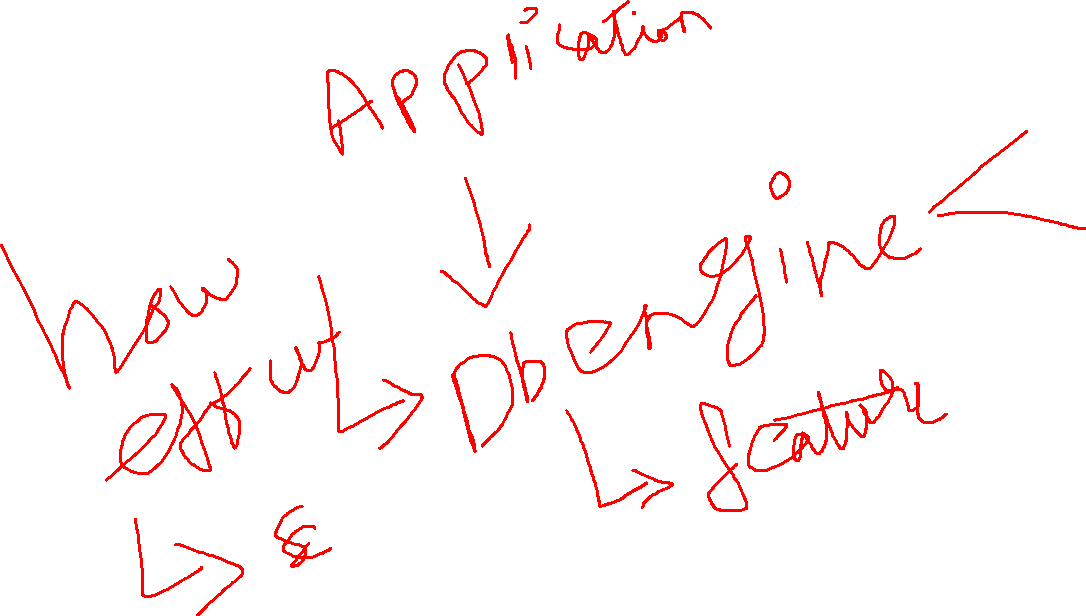 Application
how
Db engine
feature